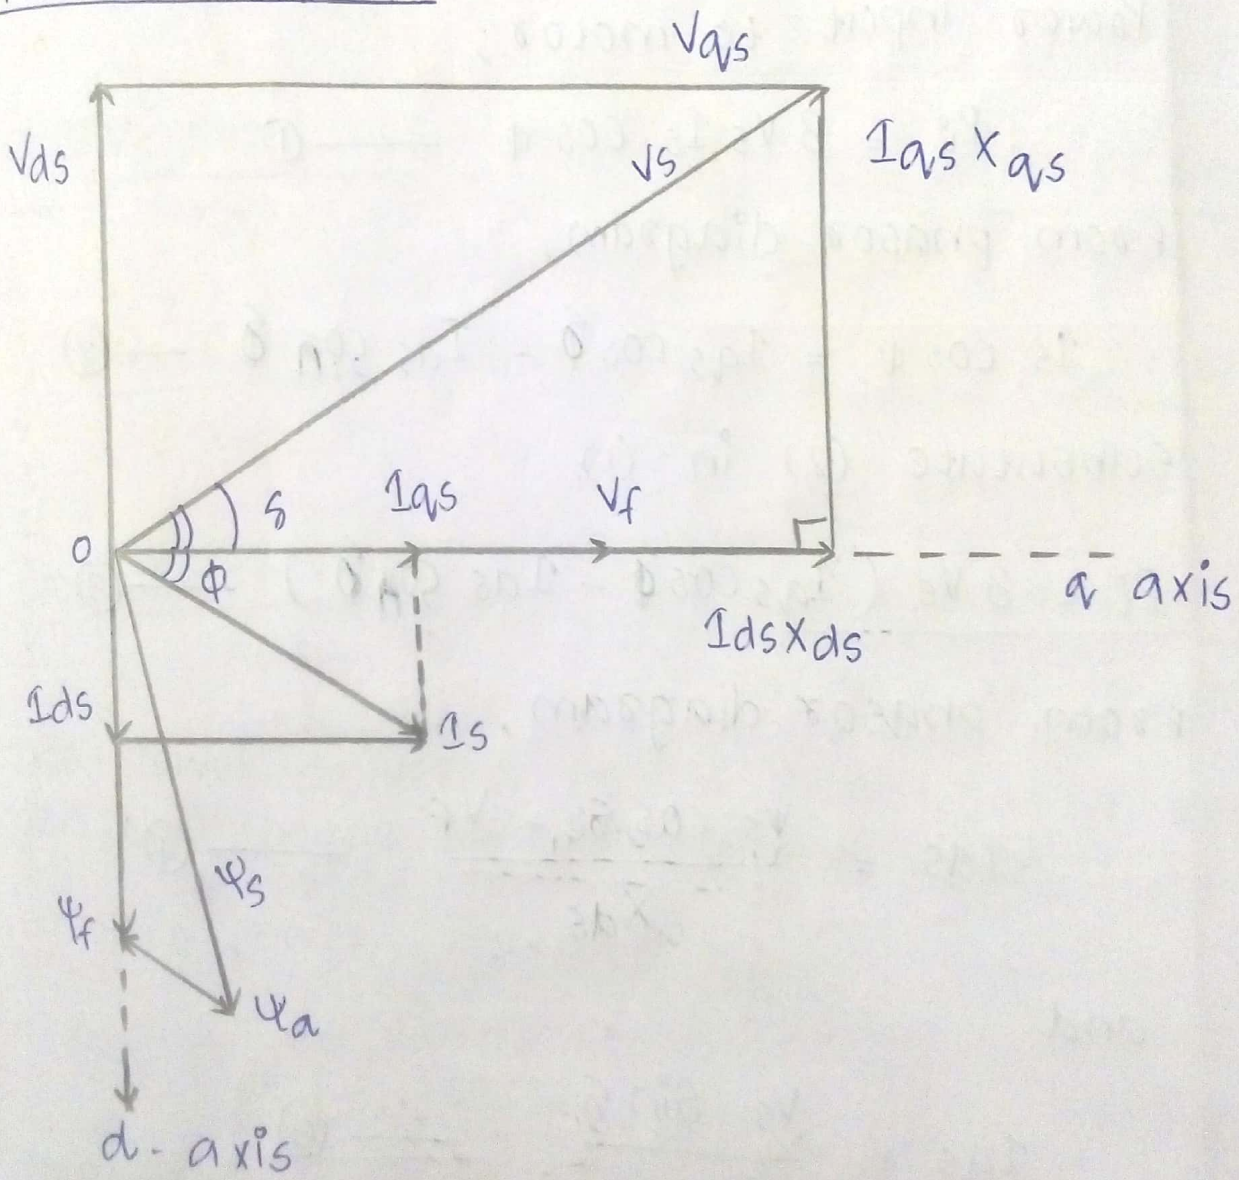 Vqs
Vds
Vs
Iqs Xqs
Iqs
Vf
δ
O
ϕ
q axis
Ids Xds
Ids
Is
Ψs
Ψf
Ψa
d - axis